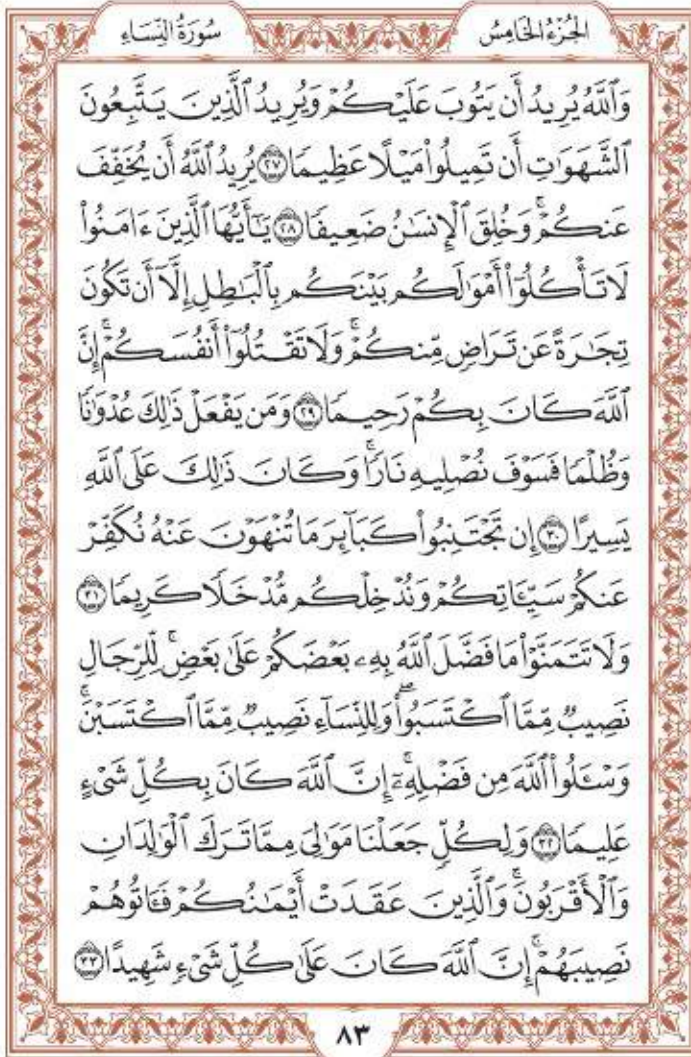 الجُزْءُ الخَامِسُ
سُورَةُ النِّسَاءِ
وَٱللَّهُ يُرِيدُ أَن يَتُوبَ عَلَيۡكُمۡ وَيُرِيدُ ٱلَّذِينَ يَتَّبِعُونَ
ٱلشَّهَوَٰتِ أَن تَمِيلُواْ مَيۡلًا عَظِيمٗا ٢٧ يُرِيدُ ٱللَّهُ أَن يُخَفِّفَ
عَنكُمۡۚ وَخُلِقَ ٱلۡإِنسَٰنُ ضَعِيفٗا ٢٨ يَٰٓأَيُّهَا ٱلَّذِينَ ءَامَنُواْ
لَا تَأۡكُلُوٓاْ أَمۡوَٰلَكُم بَيۡنَكُم بِٱلۡبَٰطِلِ إِلَّآ أَن تَكُونَ
تِجَٰرَةً عَن تَرَاضٖ مِّنكُمۡۚ وَلَا تَقۡتُلُوٓاْ أَنفُسَكُمۡۚ إِنَّ
ٱللَّهَ كَانَ بِكُمۡ رَحِيمٗا ٢٩ وَمَن يَفۡعَلۡ ذَٰلِكَ عُدۡوَٰنٗا
وَظُلۡمٗا فَسَوۡفَ نُصۡلِيهِ نَارٗاۚ وَكَانَ ذَٰلِكَ عَلَى ٱللَّهِ
يَسِيرًا ٣٠ إِن تَجۡتَنِبُواْ كَبَآئِرَ مَا تُنۡهَوۡنَ عَنۡهُ نُكَفِّرۡ
عَنكُمۡ سَيِّـَٔاتِكُمۡ وَنُدۡخِلۡكُم مُّدۡخَلٗا كَرِيمٗا ٣١
وَلَا تَتَمَنَّوۡاْ مَا فَضَّلَ ٱللَّهُ بِهِۦ بَعۡضَكُمۡ عَلَىٰ بَعۡضٖۚ لِّلرِّجَالِ
نَصِيبٞ مِّمَّا ٱكۡتَسَبُواْۖ وَلِلنِّسَآءِ نَصِيبٞ مِّمَّا ٱكۡتَسَبۡنَۚ
وَسۡـَٔلُواْ ٱللَّهَ مِن فَضۡلِهِۦٓۚ إِنَّ ٱللَّهَ كَانَ بِكُلِّ شَيۡءٍ
عَلِيمٗا ٣٢ وَلِكُلّٖ جَعَلۡنَا مَوَٰلِيَ مِمَّا تَرَكَ ٱلۡوَٰلِدَانِ
وَٱلۡأَقۡرَبُونَۚ وَٱلَّذِينَ عَقَدَتۡ أَيۡمَٰنُكُمۡ فَـَٔاتُوهُمۡ
نَصِيبَهُمۡۚ إِنَّ ٱللَّهَ كَانَ عَلَىٰ كُلِّ شَيۡءٖ شَهِيدًا ٣٣
٨٣